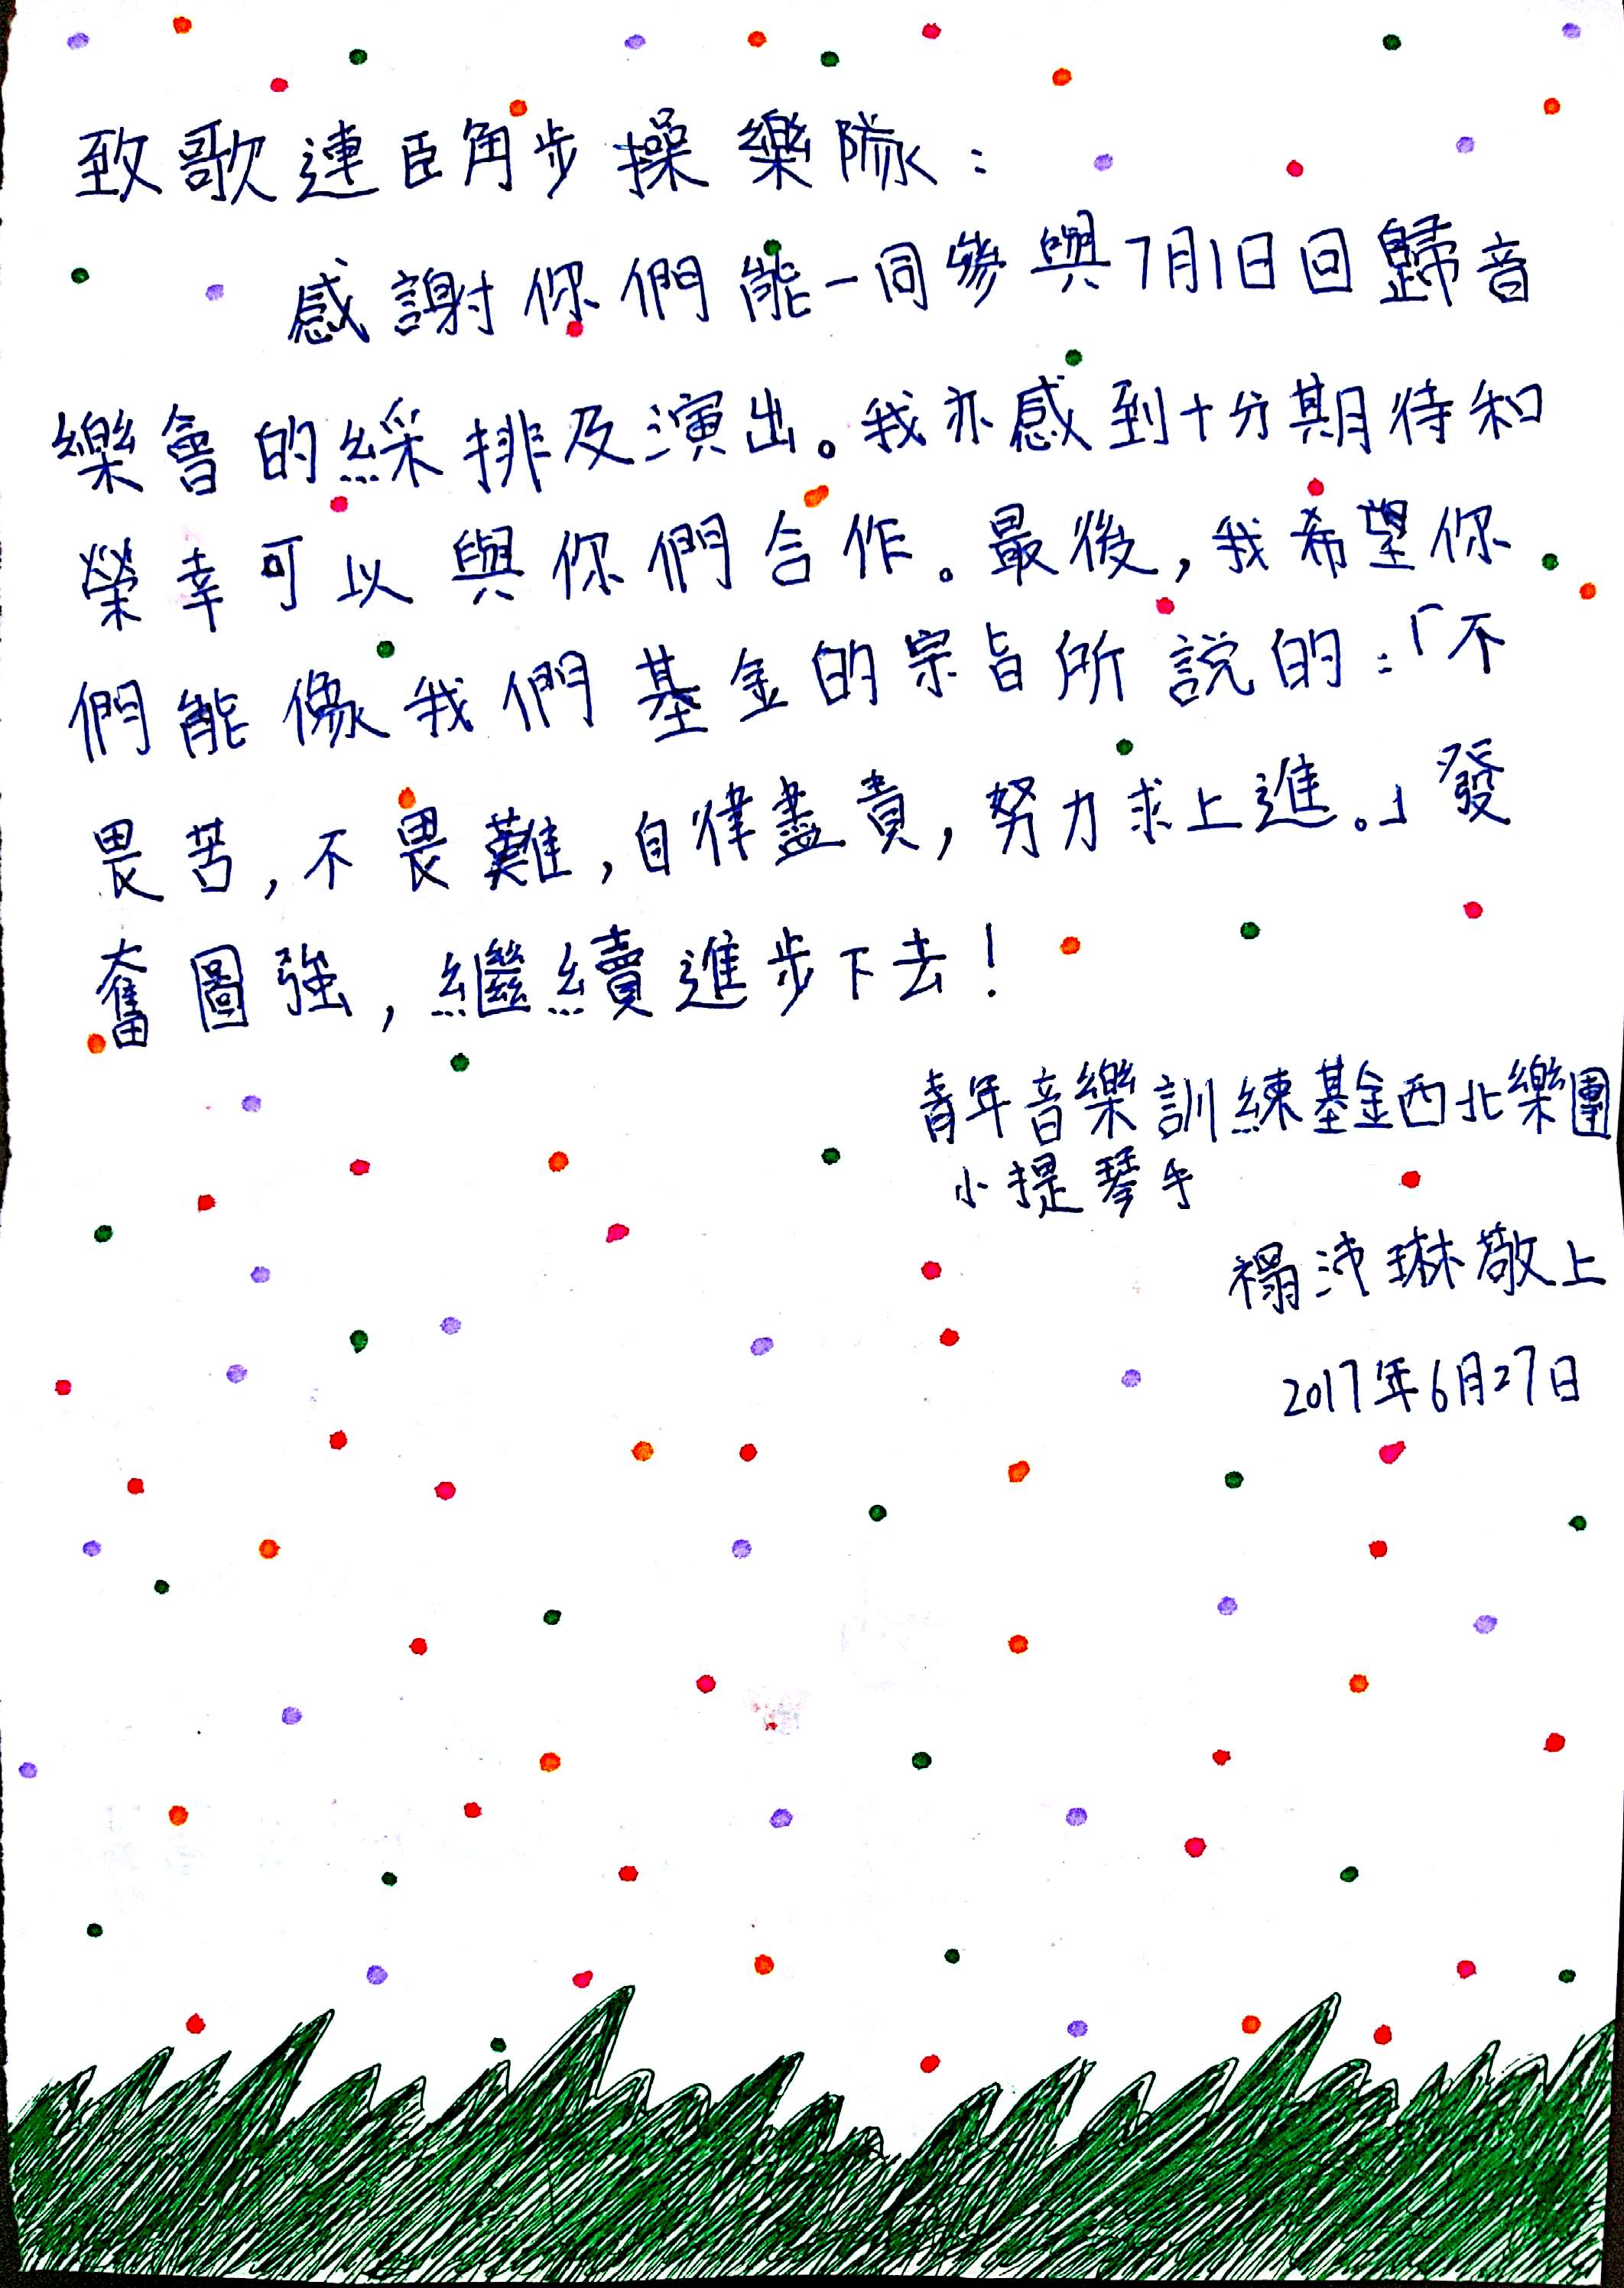 致歌連臣角步操樂隊：
感謝你們能一同參與7月1日回歸音
樂會的綵排及演出。我亦感到十分期待和
榮幸可以與你們合作。最後，我希望你
們能像我們基金的宗旨所説的：「不
畏苦，不畏難，自律盡責，努力求上進。」發
奮圖強，繼續進步下去！
青年音樂訓練基金西北樂團
小提琴手
禤沛琳敬上
2017年6月27日